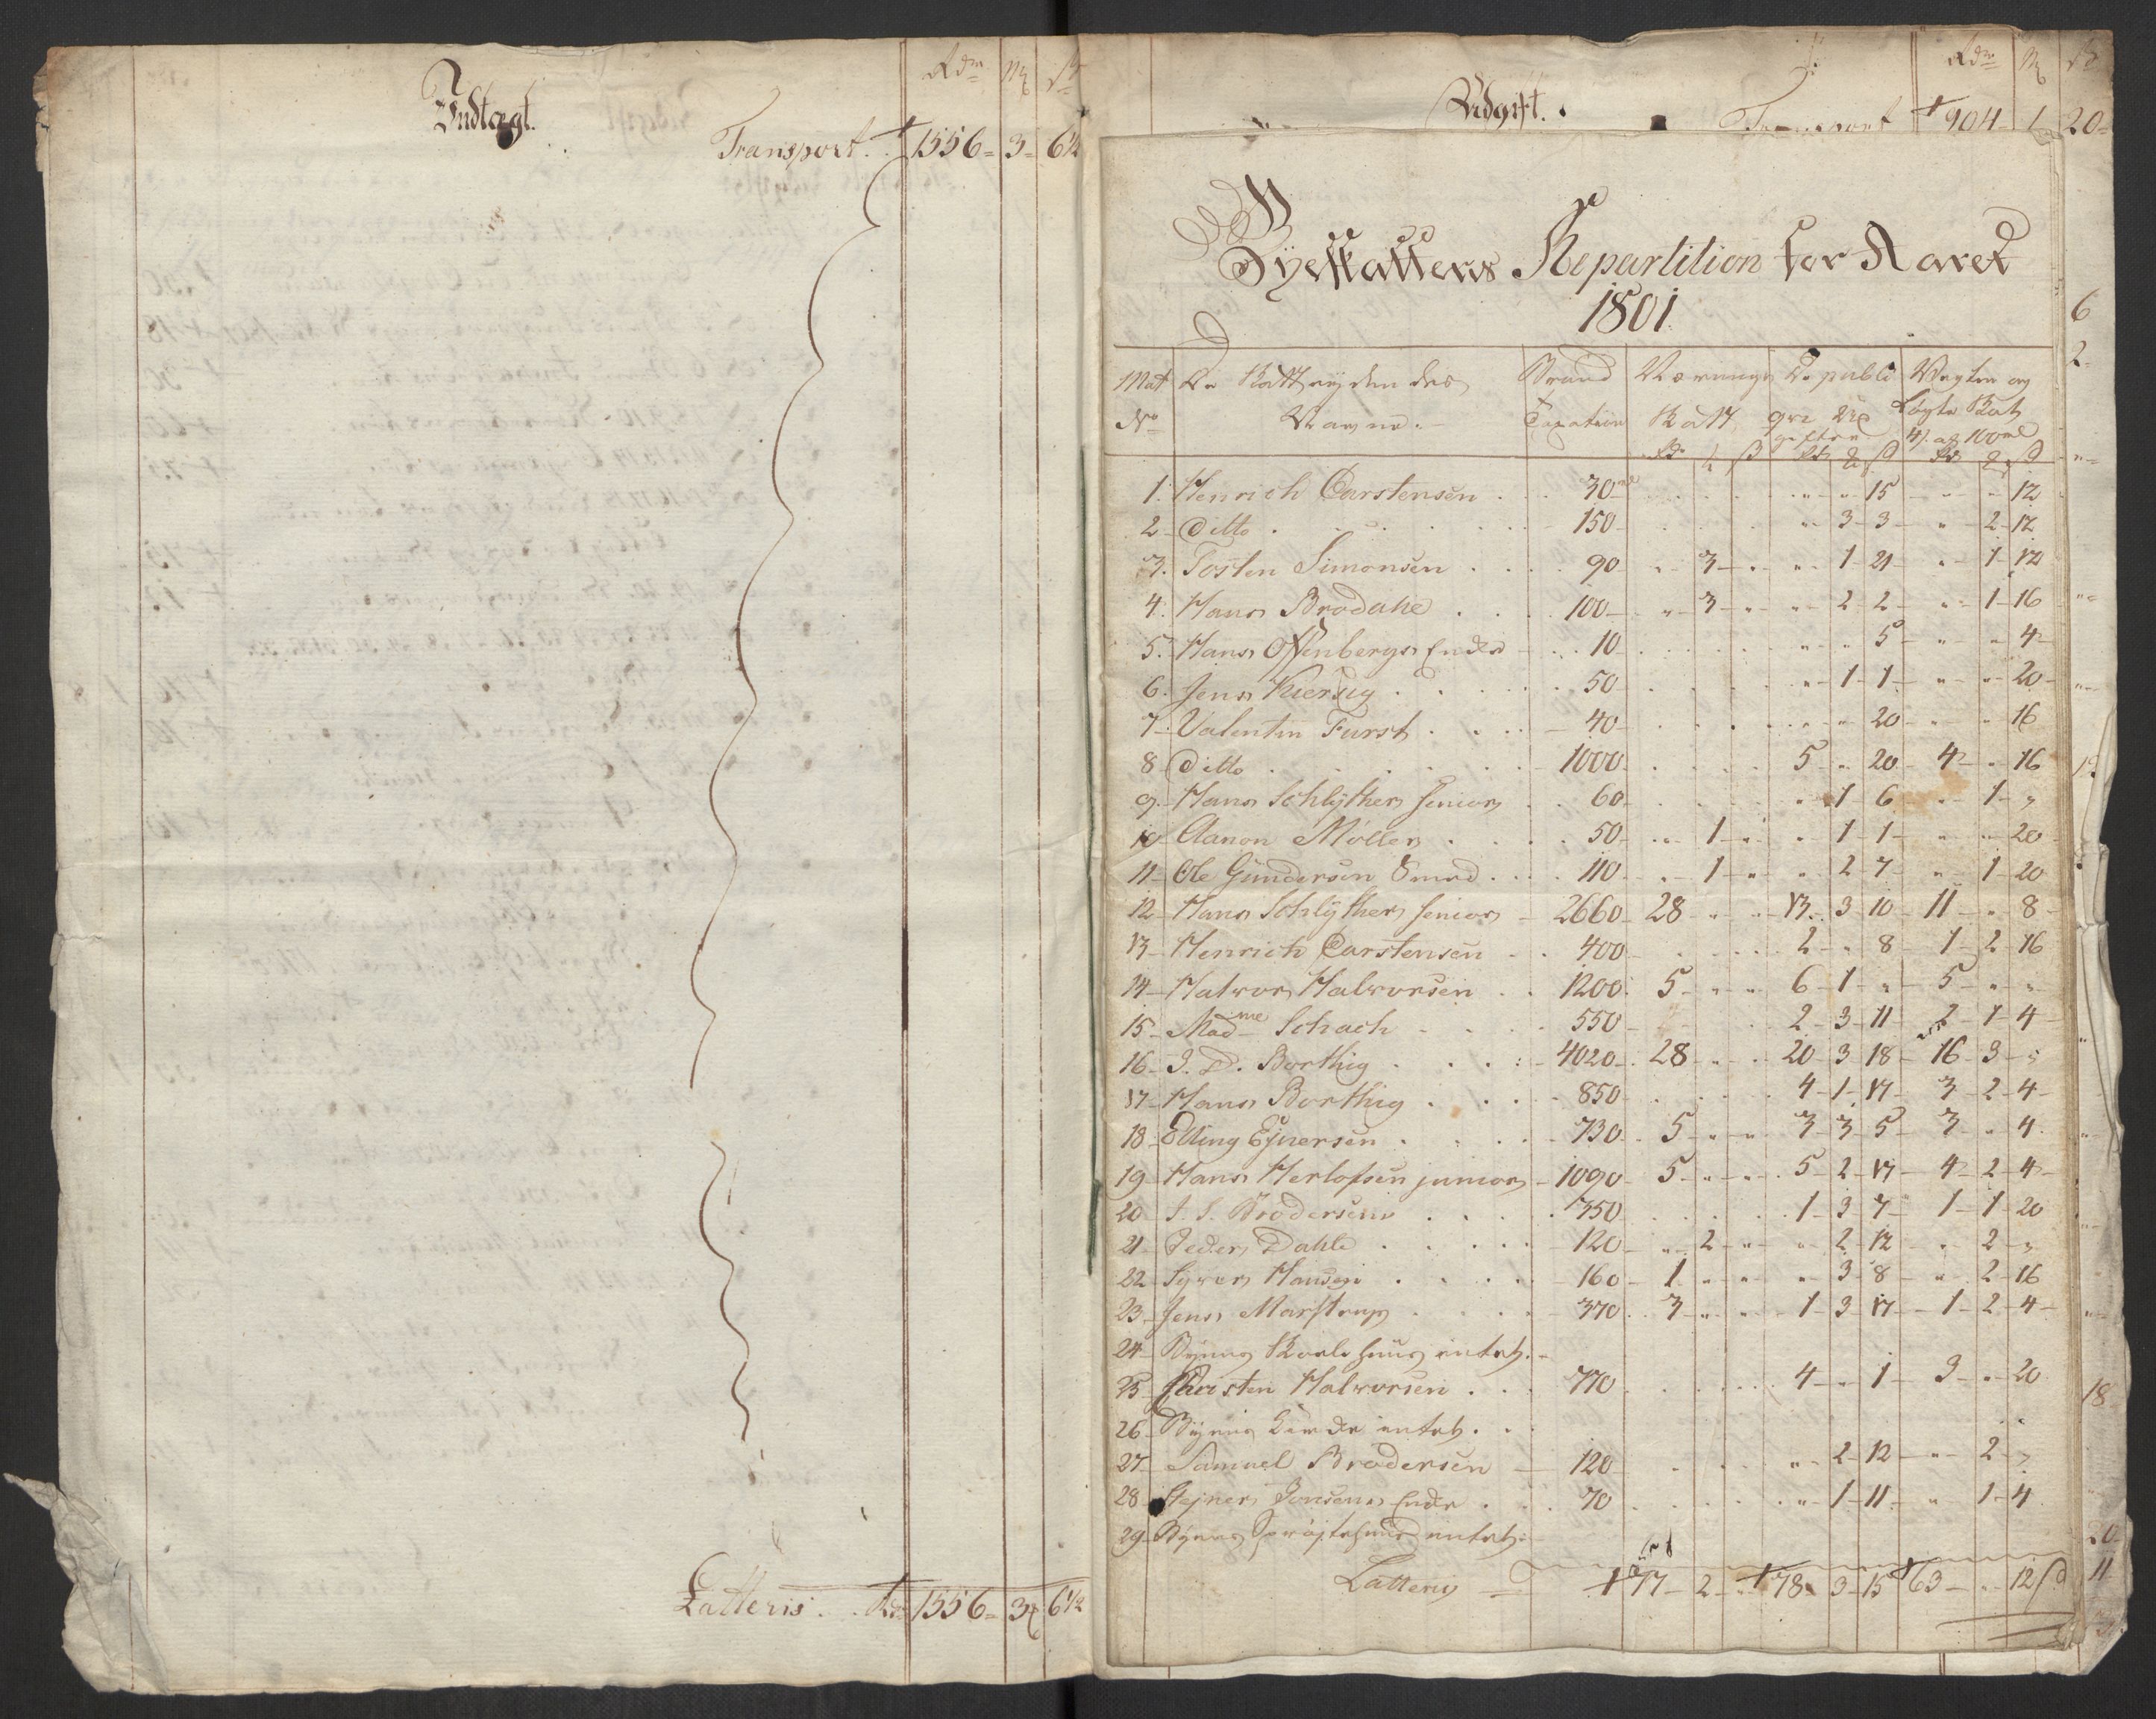 Indtægt.
Rdr Mk ß
Transport. 1556 = 3 = 6½
Latteris . . Rdr 1556 = 3 6½
Udgift.
Rdr Mk ß
Transport 904 - 1 20 =
Byeskattens Repartition for Aaret
1801.
Mat No De Skattÿdendes Navne. Brand Taxation Nærings Skatt De publiqve Udgifter Vægter og Løgte Skat 4 ß af 100
1. Henrich Carstensen . . 30 " " 15 - " " 12
2 - Ditto . . . . 150 - " 3 - 3 - " 2 - 12
3. Tosten Simonsen . . . 90 " 3 - " " 1 - 21 " 1 - 12
4. Hans Brodahe . . . 100 - " 3 - " " 2 - 2 - " 1 - 16
5. Hans Offenbergs Encke - . . 10 " " 5 - " " 4 -
6. Jens Kierdig . . . . 50 - " 1 - 1 - " " 20 -
7 - Valentin Furst . . . 40 - " " 20 - " 16
8 Ditto . . . . 1000 - 5 " 20 - 4 - " 16
9 - Hans Schlÿther Senior . . 60 - " 1 - 6 - " 1 - "
10 Aanon Møller . . . . 50 - " 1 - " " 1 - 1 - " " 20 -
11 - Ole Gundersen Smed . . . 110 - " 1 - " " 2 - 7 - " 1 - 20
12 - Hans Schlÿther Senior - 2660 - 28 " " 13 . 3 - 10 - 11 - " 8 -
13 - Henrich Carstensen - . 400 - 2 - " 8 - 1 - 2 - 16
14 - Halvor Halvorsen . . 1200 . 5 - " " 6 - 1 - " - 5 - " "
15 - Madme Schach - . . . 550 - 2 - 3 - 11 2 - 1 - 4 -
16 - J. D. Borthig . . . . 4020 - 28 . . 20 - 3 - 18 - 16 - 3 - "
17 - Hans Borthig . . . . 850 - 4 - 1 - 17 - 3 - 2 - 4 -
18 - Elling Ejnersen . . . . 730 . 5 - " " 3 - 3 - 5 - 3 - " 4
19 - Hans Herlofsen junior - 1090 - 5 - " " 5 - 2 - 17 - 4 - 2 - 4 -
20 J. S. Brodersen . . . . 350 . 1 - 3 - 7 - 1 - 1 - 20
21 - Peder Dahle . . . . 120 - " 2 - " " 2 - 12 - " 2 - "
22 - Syver Hansen . . . . 160 - 1 - " " " 3 - 8 - " 2 - 16
23 - Jens Marstrup . . . . 370 . 3 - " " 1 - 3 - 17 - 1 - 2 - 4 -
24 - Byens Skole Huus intet. -
25 - Christen Halvorsen . . . 770 4 - " 1 - 3 - " 20
26 - Byens intet . .
27 - Samuel Brodersen - 120 - " 2 - 12 - " 2 - "
28 - Stejner Jonsens Encke . . 70 . " 1 - 11 - " 1 - 4
29 - Byens Sprøjtehuus intet. -
Latteris - 77 - 2 - " 78 - 3 - 15 63 - " 12 ß